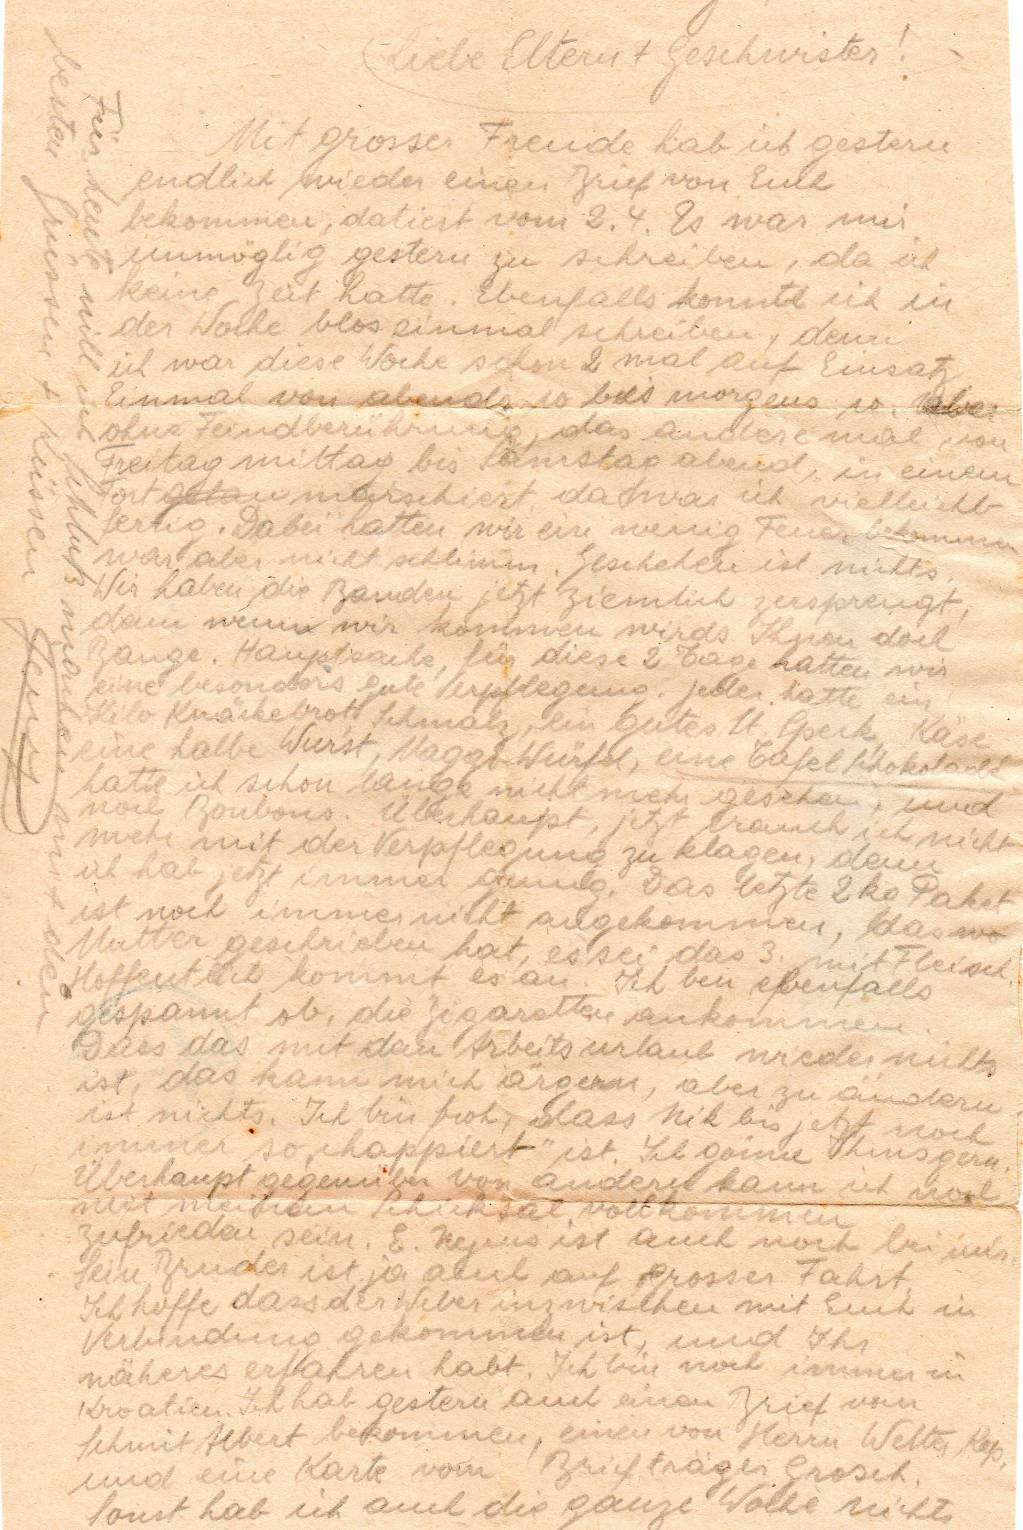 Liebe Eltern + Geschwister!
Mit grosser Freude hab ich gestern
endlich wieder einen Brief von Euch
bekommen, datiert vom 2.4. Es war mir
unmöglig gestern zu schreiben, da ich
keine Zeit hatte. Ebenfalls konnte ich in
der Woche blos einmal schreiben, denn
ich war diese Woche schon 2 mal auf Einsatz
Einmal von abends 10 bis morgens 10. Aber
ohne Feindberührung, das andere mal, von
Freitag mittag bis Samstag abend, in einem
Fort marschiert, da war ich vielleicht
fertig. Dabei hatten wir ein wenig Feuer bekommen
war aber nicht schlimm. Geschehen ist nichts.
Wir haben die Banden jetzt ziemlich zersprengt,
dann wenn wir kommen wirds Ihnen doch
Bange. Hauptsache, für diese 2 Tage hatten wir
eine besonders gute Verpflegung. jeder hatte ein
Kilo Knäckebrott Schmalz, ein gutes St. Speck, Käse
eine halbe Wurst, Maggi Würfel, eine Tafel Schokolade
hatte ich schon lange nicht mehr gesehen, und
noch Bonbons. Überhaupt, jetzt brauch ich nicht
mehr mit der Verpflegung zu klagen, denn
ich hab jetzt immer genug. Das letzte 2 kg Paket
ist noch immer nicht angekommen, das wo
Mutter geschrieben hat, es sei das 3. mit Fleisch.
Hoffentlich kommt es an. Ich bin ebenfalls
gespannt ob, die Zigaretten ankommen.
Dass das mit dem Arbeitsurlaub wieder nichts
ist, das kann mich ärgern, aber zu ändern
ist nichts. Ich bin froh, dass Nik bis jetzt noch
immer so „chappiert" ist. Ich gönne Ihms gern.
Überhaupt gegenüber von andern kann ich noch
mit meinem Schicksal vollkommen
zufrieden sein. E. ist auch noch bei uns.
Sein Bruder ist ja auch auf grosser Fahrt.
Ich hoffe dass der Weber inzwischen mit Euch in
Verbindung gekommen ist, und Ihr
näheres erfahren habt. Ich bin noch immer in
Kroatien. Ich hab gestern auch einen Brief vom
Schmit Albert bekommen, einen von Herrn Welter Kap.
und eine Karte vom Briefträger Grosch.
Sonst hab ich auch die ganze Woche nichts
Für heute will ich Schluß machen mit den
besten Grüssen + Küssen